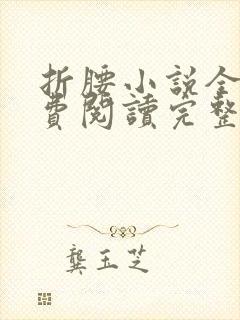 折腰小說全
費閱讀完整
龔玉芝